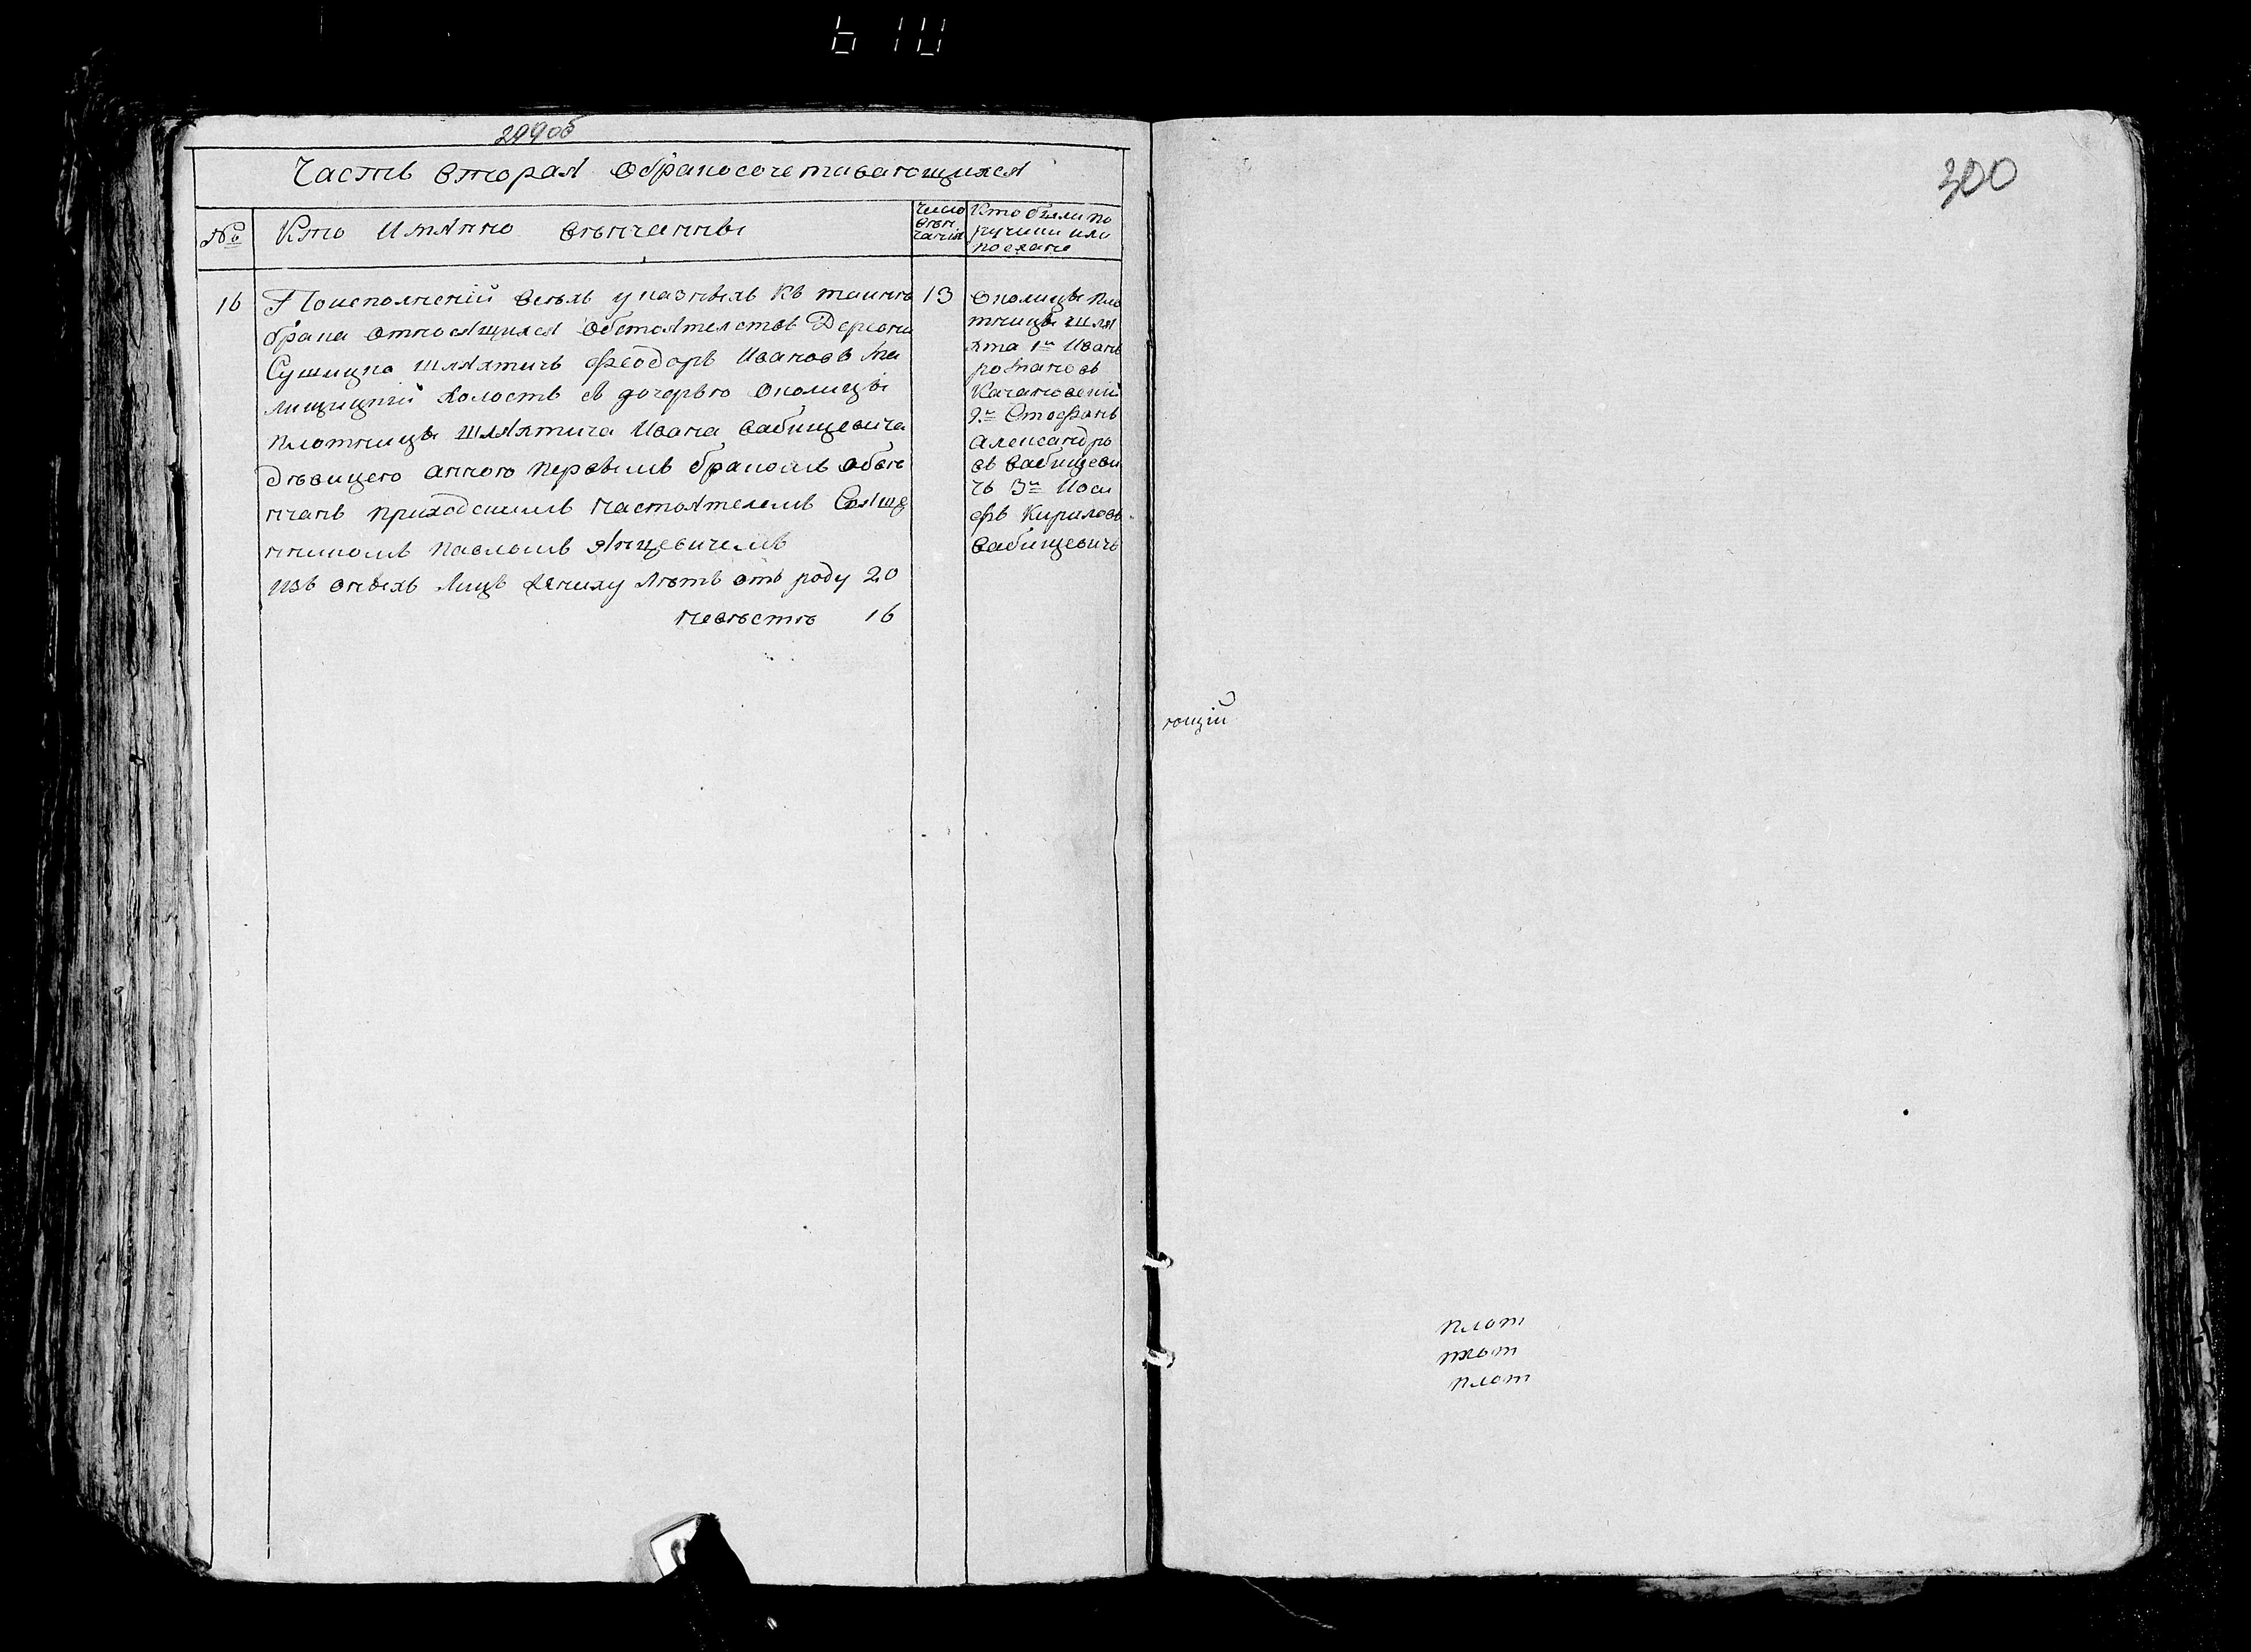 610
299об
Часть вторая обракосочетавающихся
№
Кто имянно венчанны
число
вѣн
чанія
Кто были по
ручики или
поезжане
16
По исполненіи всѣхъ указныхъ къ таинно
брака относящихся обстоятелствъ Деревни
Сушицка шляхтичь Феодоръ Ивановъ
лищицкій холостъ съ дочерью околицы
плотницы шляхтича Ивана бабицевича
дѣвицею анною первымъ бракомъ обвѣ
нчанъ приходскимъ настоятелемъ Свяще
нникомъ павломъ янцевичемъ
изъ оныхъ лицъ жениху лѣтъ отъ роду 20
невѣстѣ 16
13
околицы пло
тницы шля
хта 1й Иванъ
романовъ
Качановскій
2й Стефанъ
александро
въ бабицеви
чъ 3й Иоси
фъ Кириловъ
бабицевичъ
300
ющій
плот
плот
плот